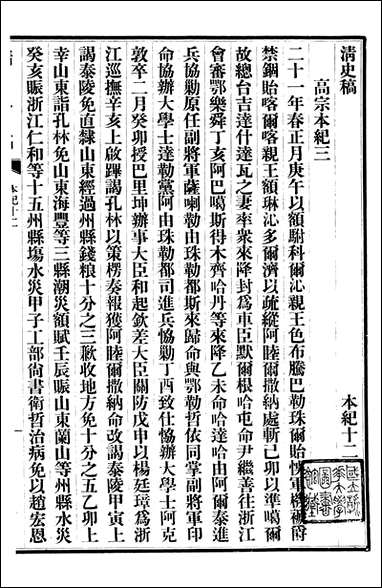 清史稿 本紀十二
高宗本紀三
二十一年春正月庚午以額駙科爾沁親王色布騰巴勒珠爾貽悞軍機褫爵
禁錮貽喀爾喀親王額琳沁多爾濟以疏縱阿睦爾撒納處斬己卯以準噶爾
故總台吉達什達瓦之妻率衆來降封爲車臣默爾根哈屯命尹繼善往浙江
會審鄂樂舜丁亥阿巴噶斯得木齊哈丹等來降乙未命哈達哈由阿爾泰進
兵協勦原任副將軍薩喇勒由珠勒都斯來歸命與鄂勒哲依同掌副將軍印
命協辦大學士達勒黨阿由珠勒都司進兵協勦丁酉致仕協辦大學士阿克
敦卒二月癸卯授巴里坤辦事大臣和起欽差大臣關防戊申以楊廷璋爲浙
江巡撫辛亥上啟蹕謁孔林以策楞奏報獲阿睦爾撒納命改謁泰陵甲寅上
謁泰陵免直隸山東經過州縣錢糧十分之三歉收地方免十分之五乙卯上
幸山東詣孔林免山東海豐等三縣潮災額賦壬辰賑山東蘭山等州縣水災
癸亥賑浙江仁和等十五州縣塲水災甲子工部尙書衛哲治病免以趙宏恩
本紀十二
一